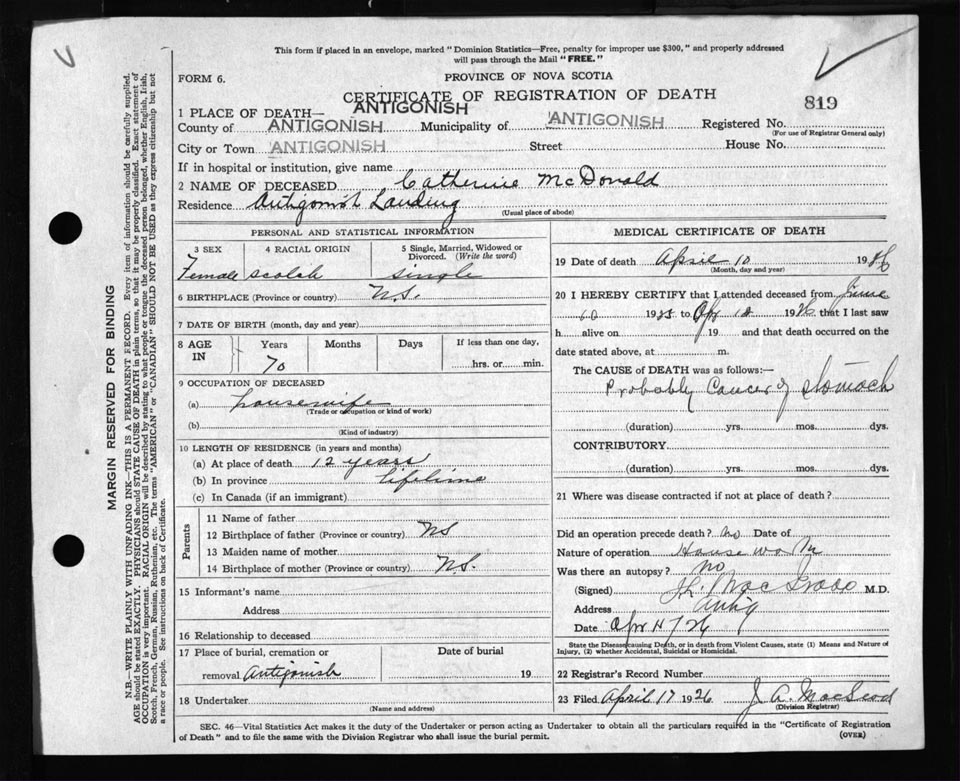 This form if placed in an envelope, marked "Dominion Statistics—Free, penalty for improper use $300," and properly addressed
will pass through the Mail "FREE."
FORM 6.
PROVINCE OF NOVA SCOTIA
CERTIFICATE OF REGISTRATION OF DEATH
819
1 PLACE OF DEATH— ANTIGONISH
County of ANTIGONISH Municipality of ANTIGONISH Registered No.
(For use of Registrar General only)
City or Town ANTIGONISH Street House No.
If in hospital or institution, give name
2 NAME OF DECEASED Catherine McDonald
Residence Antigonish Landing
(Usual place of abode)
PERSONAL AND STATISTICAL INFORMATION
3 SEX 4 RACIAL ORIGIN 5 Single, Married, Widowed or
Divorced. (Write the word)
Female Scotch Single
6 BIRTHPLACE (Province or country) N.S.
7 DATE OF BIRTH (month, day and year)
8 AGE IN Years Months Days If less than one day,
70 hrs. or min.
9 OCCUPATION OF DECEASED
(a) housewife
(Trade or occupation or kind of work)
(b)
(Kind of industry)
10 LENGTH OF RESIDENCE (in years and months)
(a) At place of death 12 years
(b) In province lifetime
(c) In Canada (if an immigrant)
Parents
11 Name of father
12 Birthplace of father (Province or country) NS
13 Maiden name of mother
14 Birthplace of mother (Province or country) N.S.
15 Informant's name
Address
16 Relationship to deceased
17 Place of burial, cremation or Date of burial
removal Antigonish 19
18 Undertaker
(Name and address)
MEDICAL CERTIFICATE OF DEATH
19 Date of death April 10 19
(Month, day and year)
20 I HEREBY CERTIFY that I attended deceased from June
19 to Apr 19 that I last saw
h alive on 19 and that death occurred on
date stated above, at m.
The CAUSE of DEATH was as follows:—
Probably Cancer of Stomach
(duration) yrs. mos. dys.
CONTRIBUTORY
(duration) yrs. mos. dys.
21 Where was disease contracted if not at place of death?
Did an operation precede death? no Date of
Nature of operation House work
Was there an autopsy? no
(Signed) M.D.
Address Antig
Date Apr 26
State the Disease causing Death, or in death from Violent Causes, state (1) Means and Nature of
Injury, (2) whether Accidental, Suicidal or Homicidal.
22 Registrar's Record Number
23 Filed April 17 1926 J. A. MacLeod
(Division Registrar)
SEC. 46—Vital Statistics Act makes it the duty of the Undertaker or person acting as Undertaker to obtain all the particulars required in the "Certificate of Registration
of Death" and to file the same with the Division Registrar who shall issue the burial permit.
(OVER)
MARGIN RESERVED FOR BINDING
N.B.—WRITE PLAINLY WITH UNFADING INK—THIS IS A PERMANENT RECORD. Every item of information should be carefully supplied.
AGE should be stated EXACTLY. PHYSICIANS should STATE CAUSE OF DEATH in plain terms, so that it may be properly classified. Exact statement of
OCCUPATION is very important. RACIAL ORIGIN will be described by stating to what people or tongue the deceased person belonged, whether English, Irish,
Scotch, French, German, Russian, Ruthenian, etc. The terms "AMERICAN" or "CANADIAN" SHOULD NOT BE USED as they express citizenship but not
a race or people. See instructions on back of Certificate.